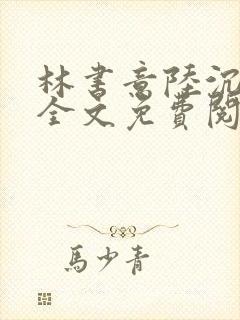 林书意陸沉
全文免費閱
馬少青